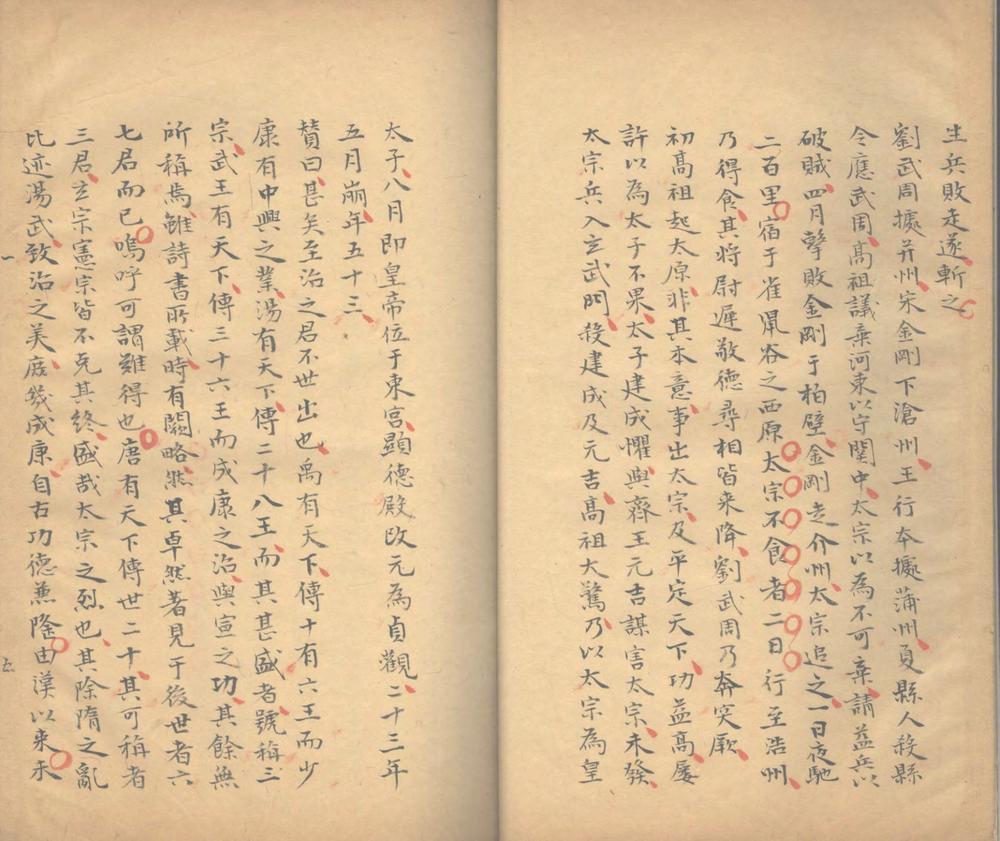 生兵敗走遂斬之
劉武周據并州宋金剛下滄州王行本據蒲州夏縣人殺縣
令應武周高祖議棄河東以守関中太宗以為不可棄請益兵以
破賊四月擊敗金剛于柏壁金剛走介州太宗追之一日夜馳
二百里宿于雀鼠谷之西原太宗不食者二日行至浩州
乃得食其將尉遲敬德尋相皆来降劉武周乃奔突厥
初高祖起太原非其本意事出太宗及平定天下功益高屡
許以為太子不果太子建成懼與齊王元吉謀害太宗未發
太宗兵入玄武門殺建成及元吉高祖大驚乃以太宗為皇
太子八月即皇帝位于東宮顯德殿改元為貞觀二十三年
五月崩年五十三
賛曰甚矣至治之君不世出也禹有天下傳十有六王而少
康有中興之業湯有天下傳二十八王而其甚盛者號稱三
宗武王有天下傳三十六王而成康之治與宣之功其餘無
所稱焉雖詩書所載時有闕略然其卓然著見于後世者六
七君而已嗚呼可謂難得也唐有天下傳世二十其可稱者
三君玄宗憲宗皆不克其終盛哉太宗之烈也其除隋之亂
比迹湯武致治之美庶幾成康自古功德兼隆由漢以来未
一